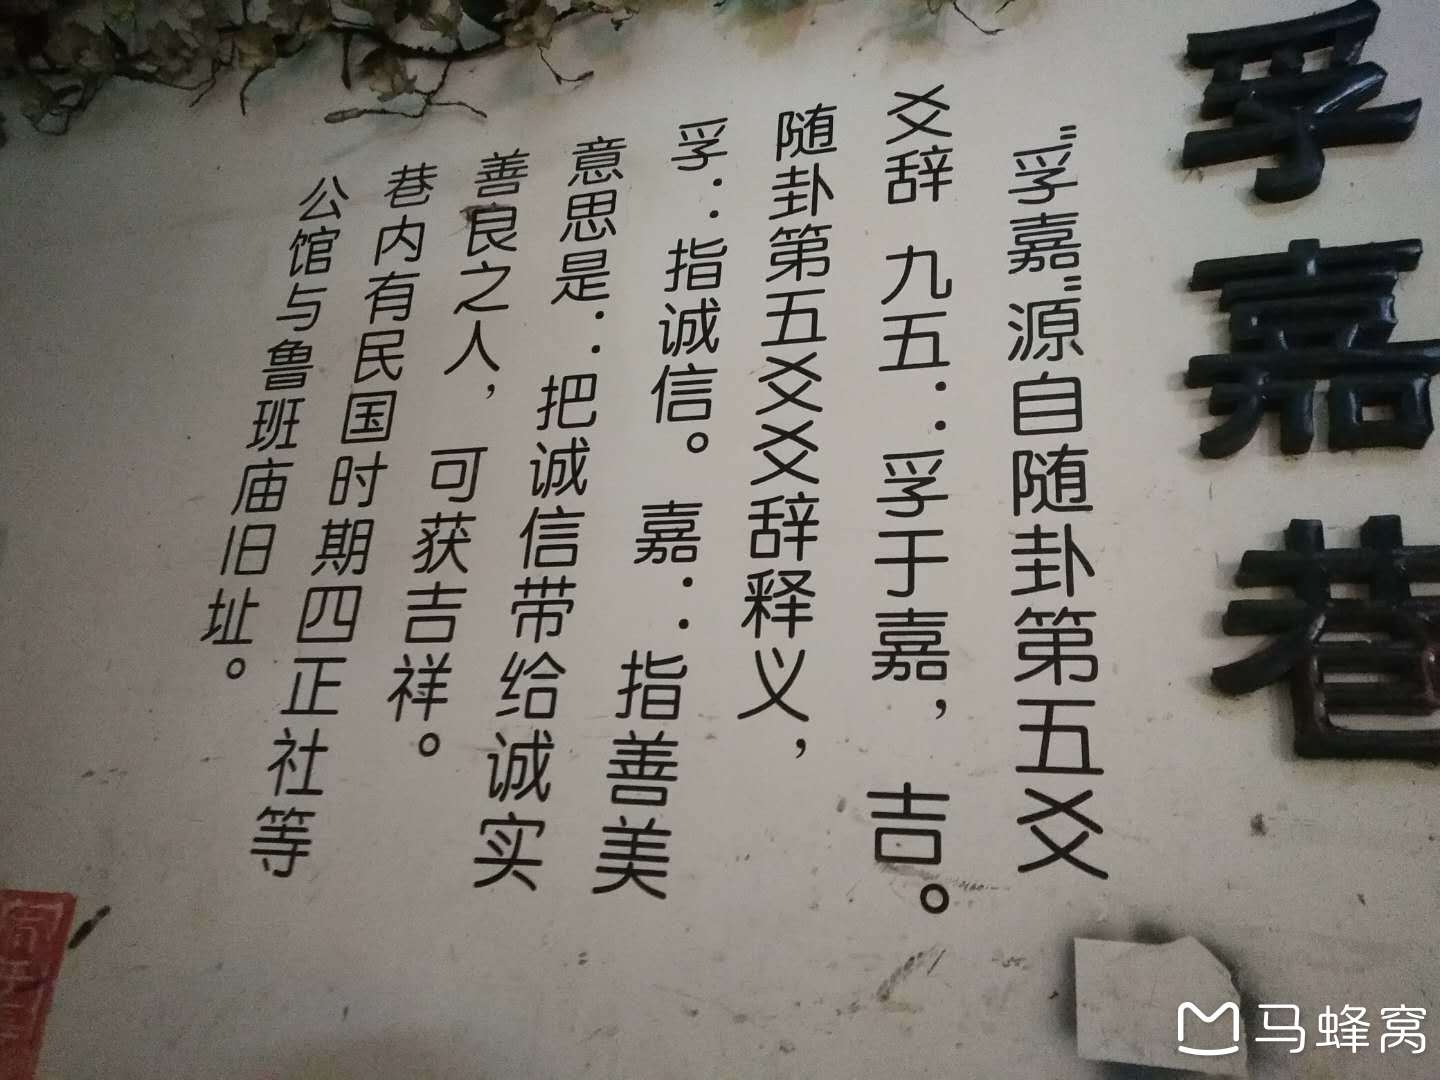 孚嘉巷
“孚嘉”源自随卦第五爻
爻辞 九五：孚于嘉，吉。
随卦第五爻爻辞释义，
孚：指诚信。 嘉：指善美
意思是：把诚信带给诚实
善良之人，可获吉祥。
巷内有民国时期四正社等
公馆与鲁班庙旧址。
马蜂窝